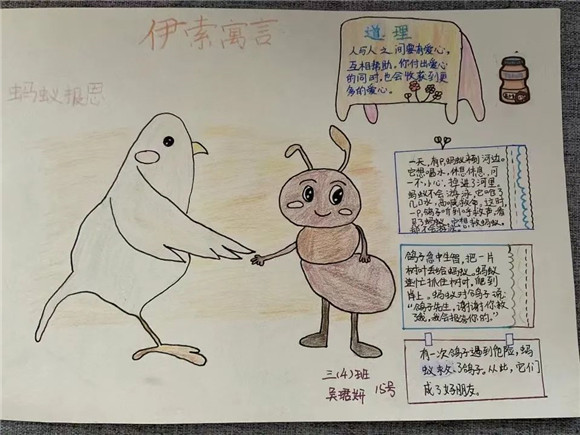 伊索寓言
蚂蚁报恩
道理
人与人之间要有爱心,
互相帮助。你付出爱心
的同时,也会收获到更
多的爱心。
一天,有只蚂蚁来到河边。
它想喝水,休息休息,可
一不小心,掉进了河里。
蚂蚁不会游泳,它喝了
几口水,
一只鸽子听到呼救声,看
见了蚂蚁,它想救蚂蚁,
鸽子急中生智,把一片
树叶丢给蚂蚁。蚂蚁
连忙抓住树叶,爬到
岸上。蚂蚁对鸽子说:
“鸽子先生,谢谢你救
了我,我会报答你的。”
有一次鸽子遇到危险,蚂
蚁救了鸽子。从此,它们
成了好朋友。
三(4)班
吴珺妍 15号